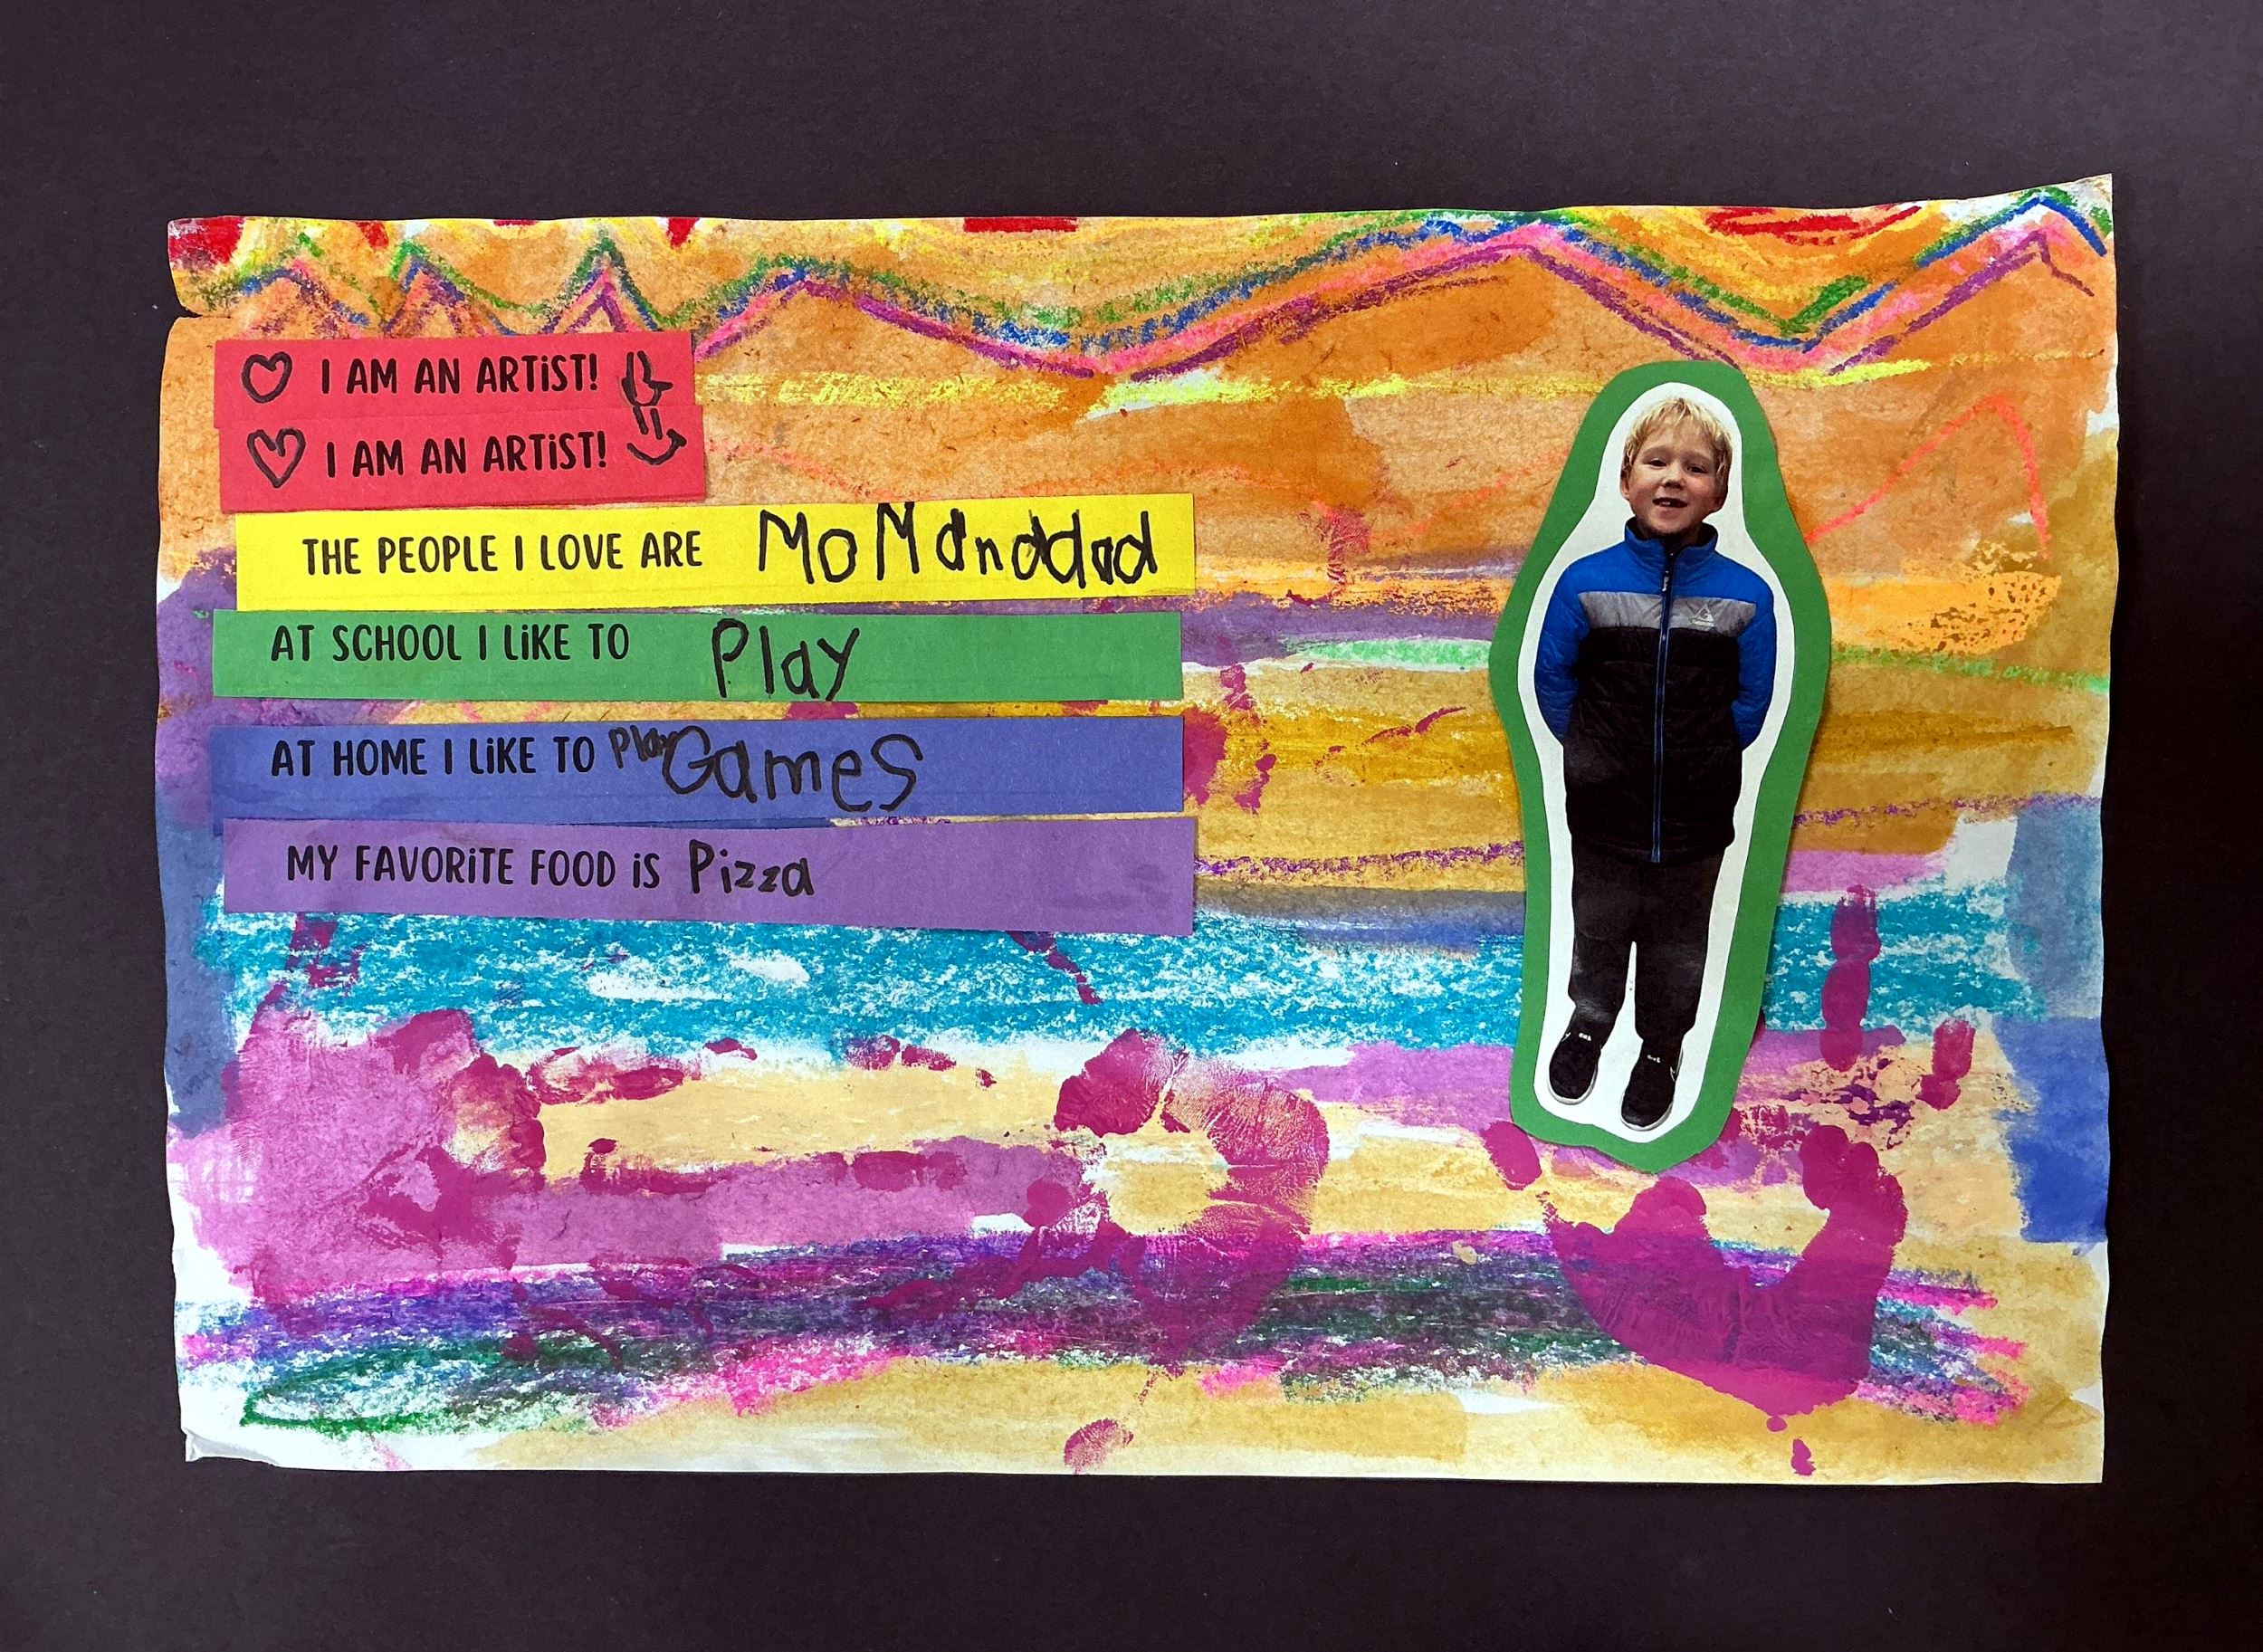 I AM AN ARTiST!
I AM AN ARTiST!
THE PEOPLE I LOVE ARE MoManddad
AT SCHOOL I LiKE TO Play
AT HOME I LiKE TO Play Games
MY FAVORiTE FOOD iS Pizza